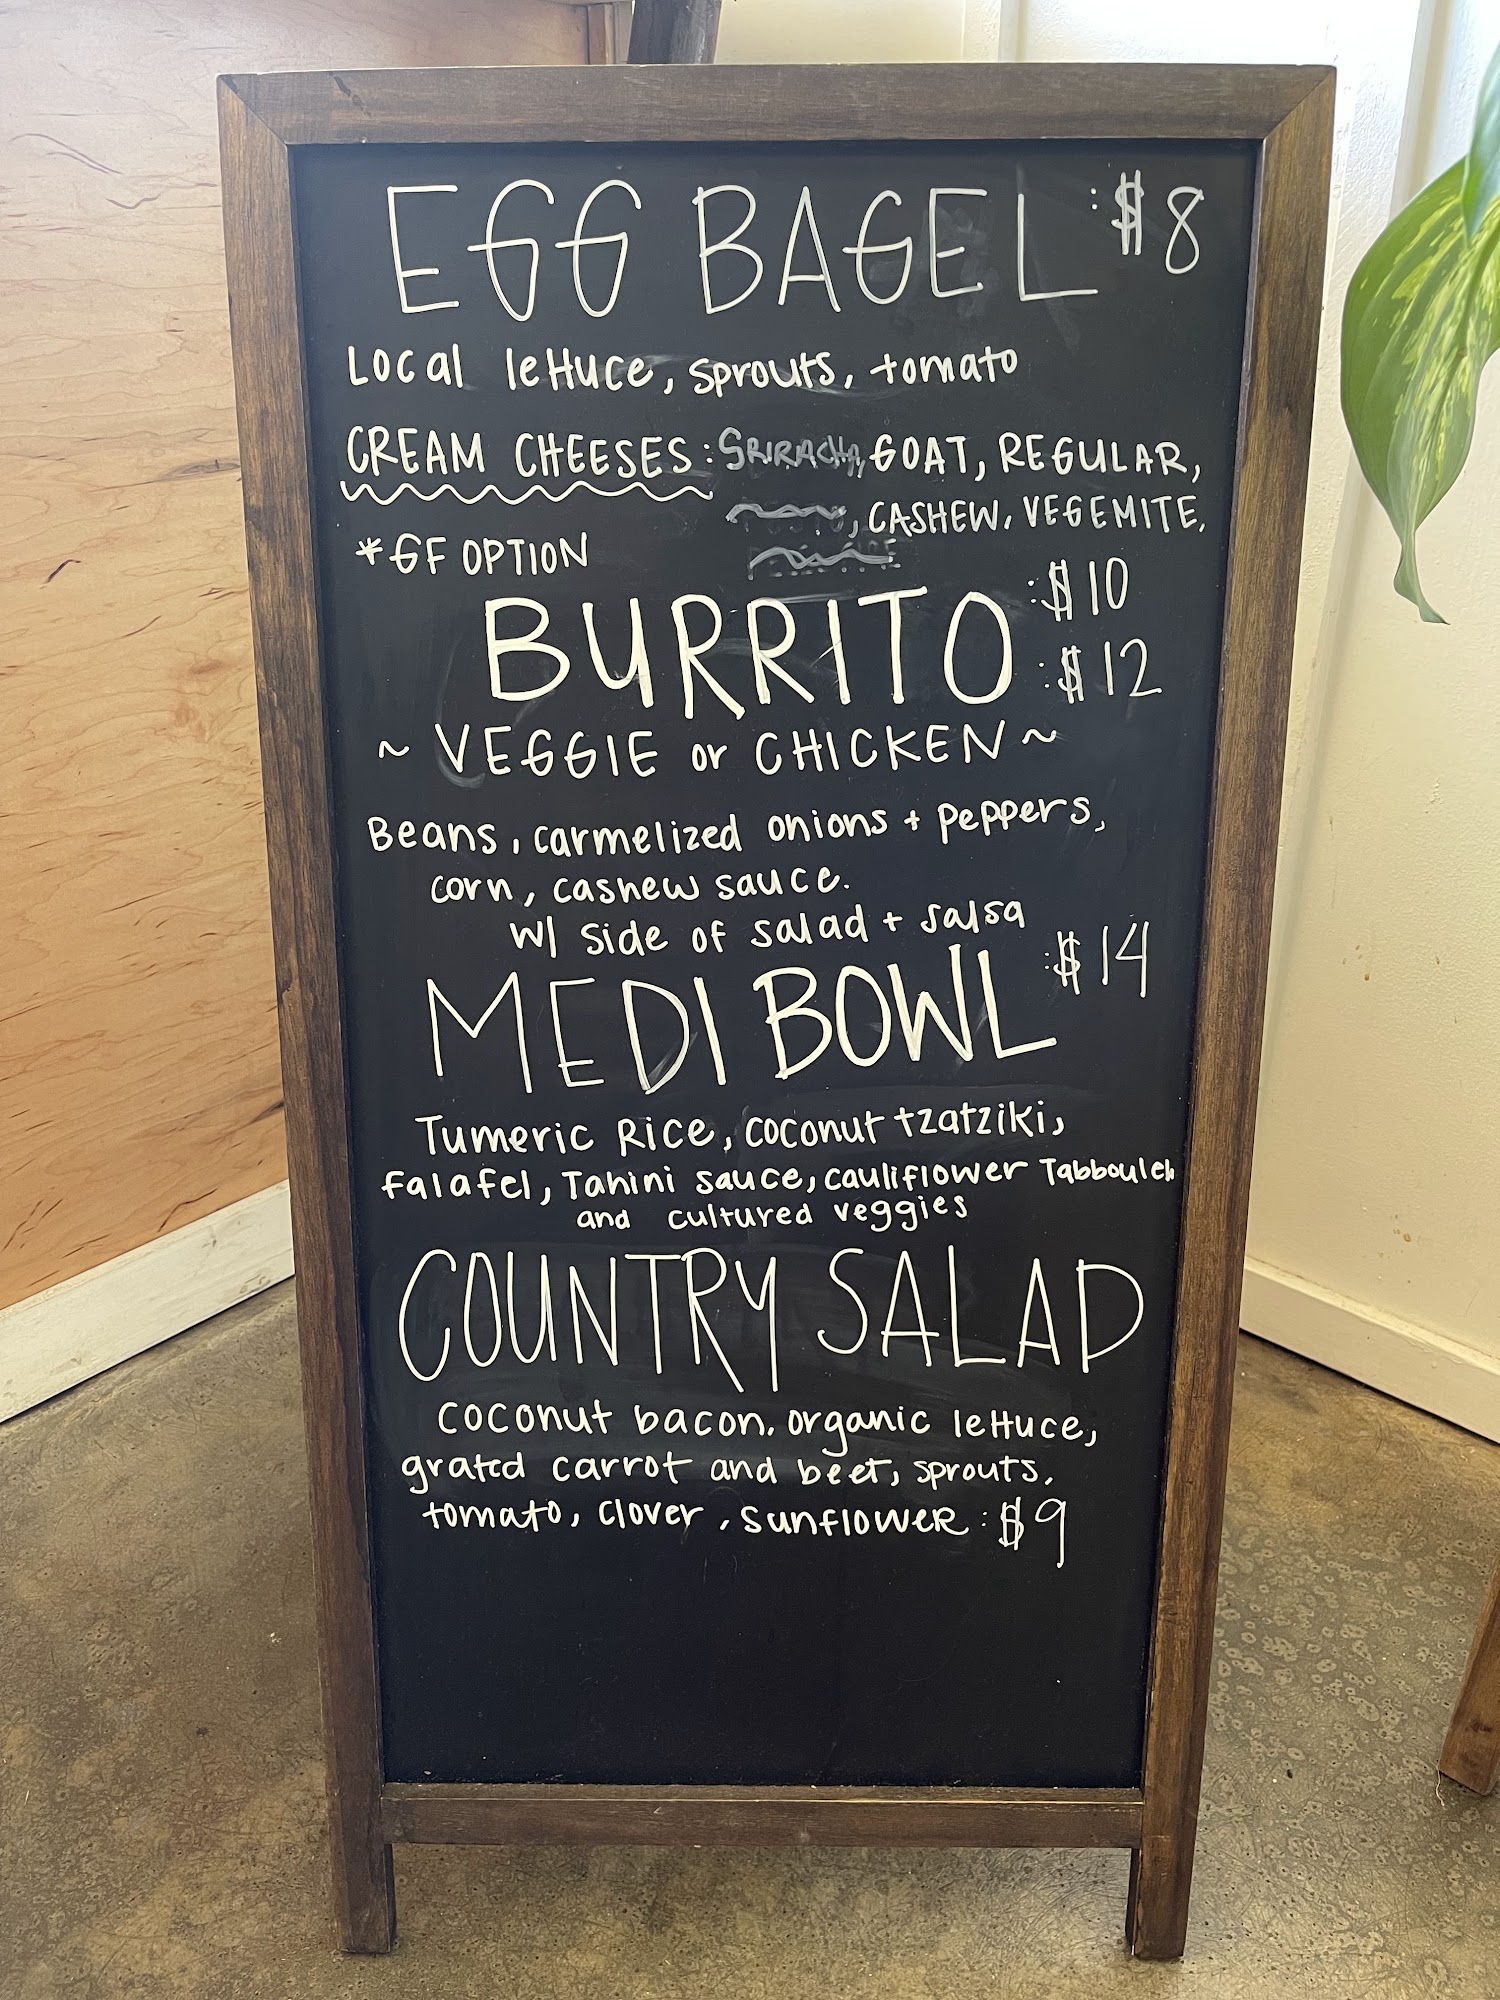 EGG BAGEL :$8
Local lettuce, sprouts, tomato
CREAM CHEESES: SRIRACHA, GOAT, REGULAR,
, CASHEW, VEGEMITE,
*GF OPTION
BURRITO :$10
:$12
~ VEGGIE or CHICKEN ~
Beans, carmelized onions + peppers,
corn, cashew sauce.
w/ side of salad + salsa
MEDI BOWL :$14
Tumeric Rice, coconut tzatziki,
falafel, Tahini sauce, cauliflower Tabbouleh
and cultured veggies
COUNTRY SALAD
coconut bacon, organic lettuce,
grated carrot and beet, sprouts,
tomato, clover, sunflower :$9